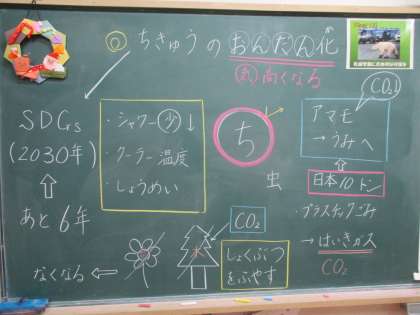 ◎ ちきゅうのおんだん化
気 高くなる
SDGs
(2030年)
あと6年
なくなる
・シャワー 少 ↓
・クーラー 温度
・しょうめい
ち
虫
CO2
水
しょくぶつ
をふやす
CO2↓
アマモ
→ うみへ
日本10トン
・プラスチックごみ
→ はいきガス
CO2